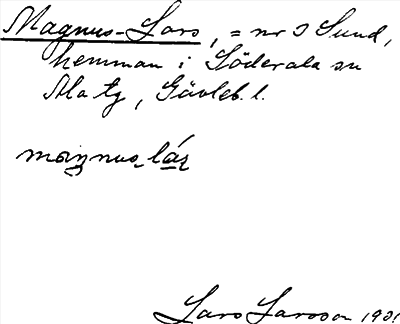 Magnus-Lars, = nr 3 Sund,
hemman i Söderala sn
Ala tg, Gävleb. l.
magnus lás
Lars Larsson 1931